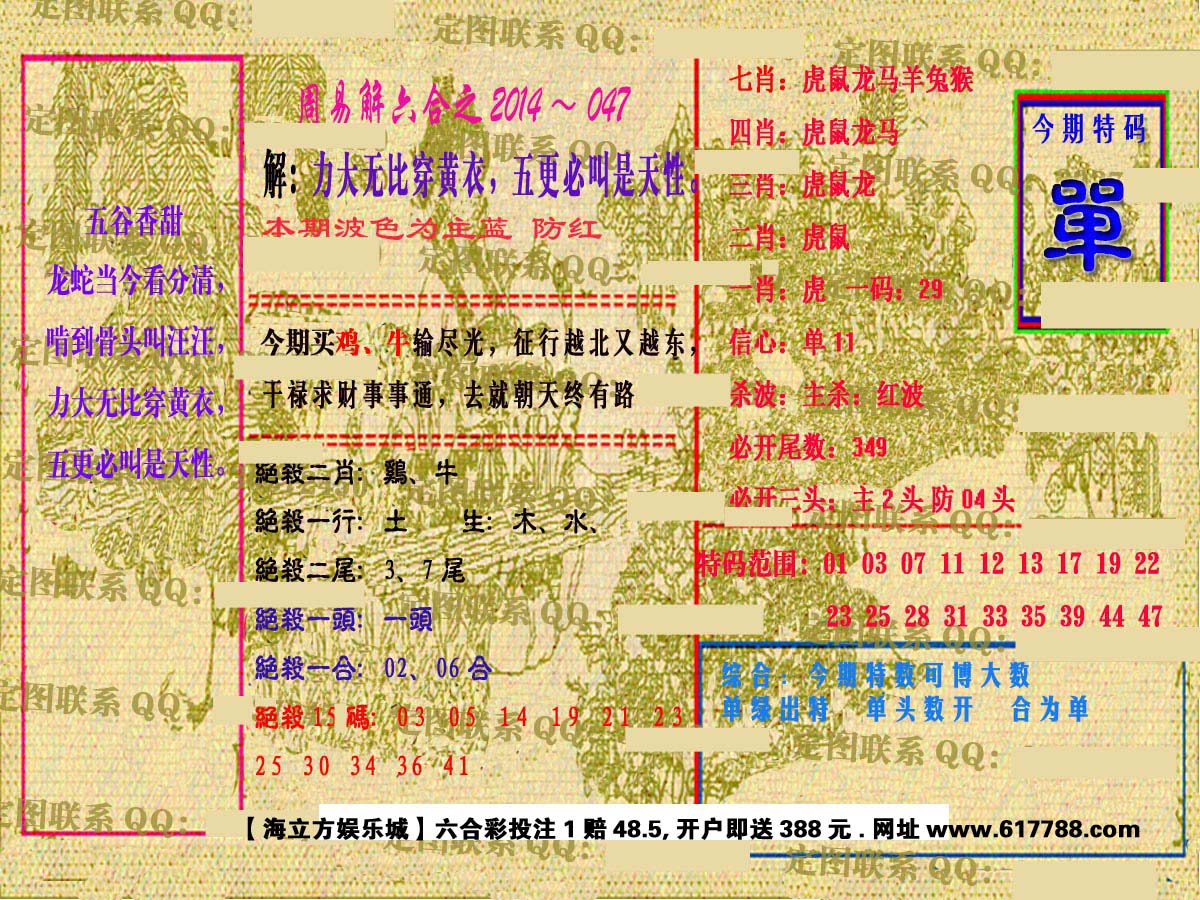 周易解六合之2014～047
解：力大无比穿黄衣，五更必叫是天性。
本期波色为主蓝 防红
五谷香甜
龙蛇当今看分清，
啃到骨头叫汪汪，
力大无比穿黄衣，
五更必叫是天性。
今期买鸡、牛输尽光，征行越北又越东，
干禄求财事事通，去就朝天终有路
絕殺二肖：鷄、牛
絕殺一行：土 生：木、水、
絕殺二尾：3、7尾
絕殺一頭：一頭
絕殺一合：02、06合
絕殺15碼：03 05 14 19 21 23
25 30 34 36 41
七肖：虎鼠龙马羊兔猴
四肖：虎鼠龙马
三肖：虎鼠龙
二肖：虎鼠
一肖：虎 一码：29
信心：单11
杀波：主杀：红波
必开尾数：349
必开三头：主2头防04头
今期特码
單
特码范围：01 03 07 11 12 13 17 19 22
23 25 28 31 33 35 39 44 47
综合：今期特数可博大数
单绿出特 单头数开 合为单
【海立方娱乐城】六合彩投注1赔48.5,开户即送388元.网址www.617788.com
定图联系QQ：
定图联系QQ：
定图联系QQ：
定图联系QQ：
定图联系QQ：
定图联系QQ：
定图联系QQ：
定图联系QQ：
定图联系QQ：